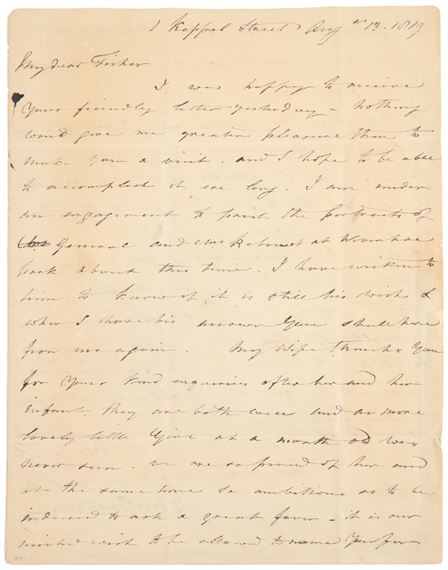 1 Keppel Street Augst 13. 1819
My dear Fisher
I was happy to receive
Your friendly letter yesterday - nothing
would give me greater pleasure than to
make you a visit. and I hope to be able
to accomplish it ere long. I am under
an engagement to paint the portraits of
General and Mrs Rebow at Wivenhoe
park about this time. I have written to
him to know if it is still his wish &
when I have his answer You shall hear
from me again. My Wife thanks You
for Your kind enquiries after her and her
infant. they are both well and a more
lovely little Girl at a month old was
never seen. we are so proud of her and
at the same time so ambitious as to be
induced to ask a great favor - it is our
united wish to be allowed to name You for